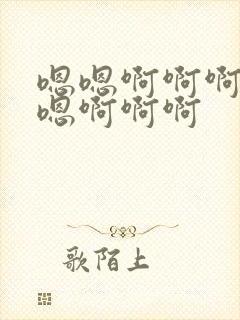 嗯嗯啊啊啊
嗯啊啊啊
歌陌上